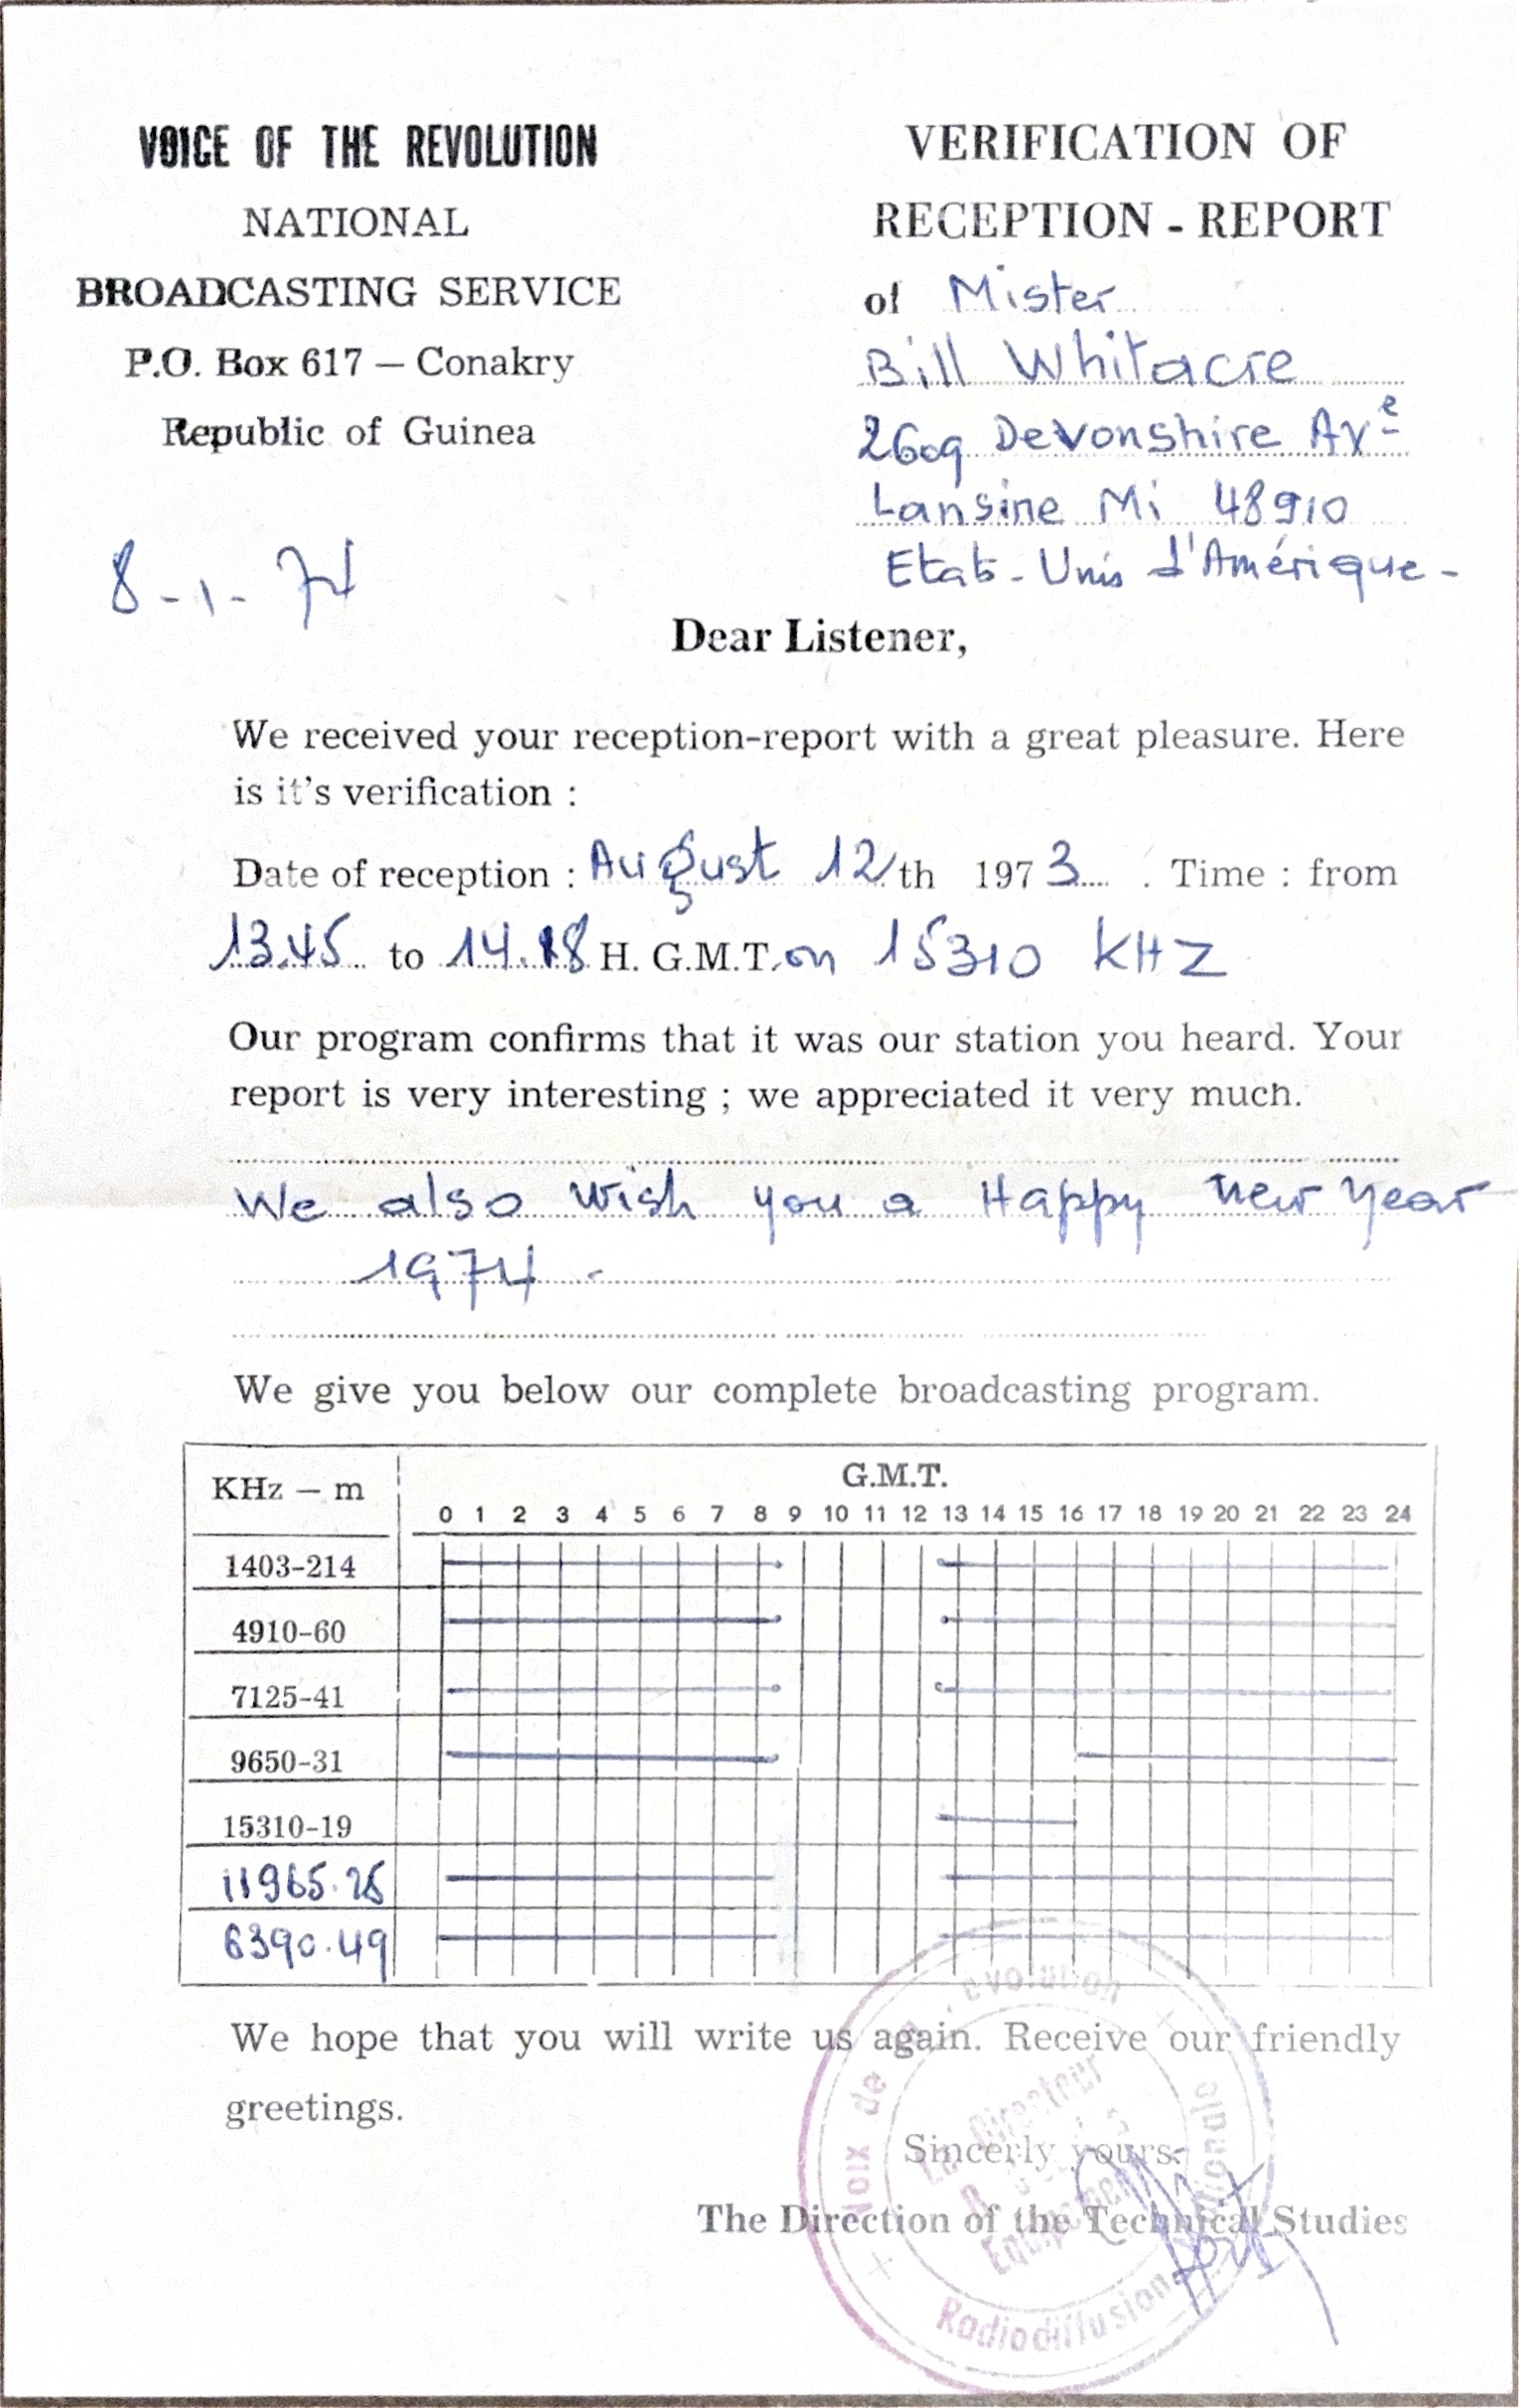 VOICE OF THE REVOLUTION
NATIONAL
BROADCASTING SERVICE
P.O. Box 617 — Conakry
Republic of Guinea
8-1-74
VERIFICATION OF
RECEPTION - REPORT
of Mister
Bill Whitacre
2609 Devonshire Ave
Lansine Mi 48910
Etats-Unis d'Amérique-
Dear Listener,
We received your reception-report with a great pleasure. Here
is it's verification :
Date of reception : August 12th 1973 . Time : from
13.45 to 14.18 H. G.M.T. on 15310 KHZ
Our program confirms that it was our station you heard. Your
report is very interesting ; we appreciated it very much.
We also wish you a Happy new year
1974 -
We give you below our complete broadcasting program.
KHz — m
G.M.T.
0 1 2 3 4 5 6 7 8 9 10 11 12 13 14 15 16 17 18 19 20 21 22 23 24
1403-214
4910-60
7125-41
9650-31
15310-19
11965.25
6390.49
We hope that you will write us again. Receive our friendly
greetings.
Sincerly yours.
The Direction of the Technical Studies
Voix de evolution
Radiodiffusion
Le Directeur